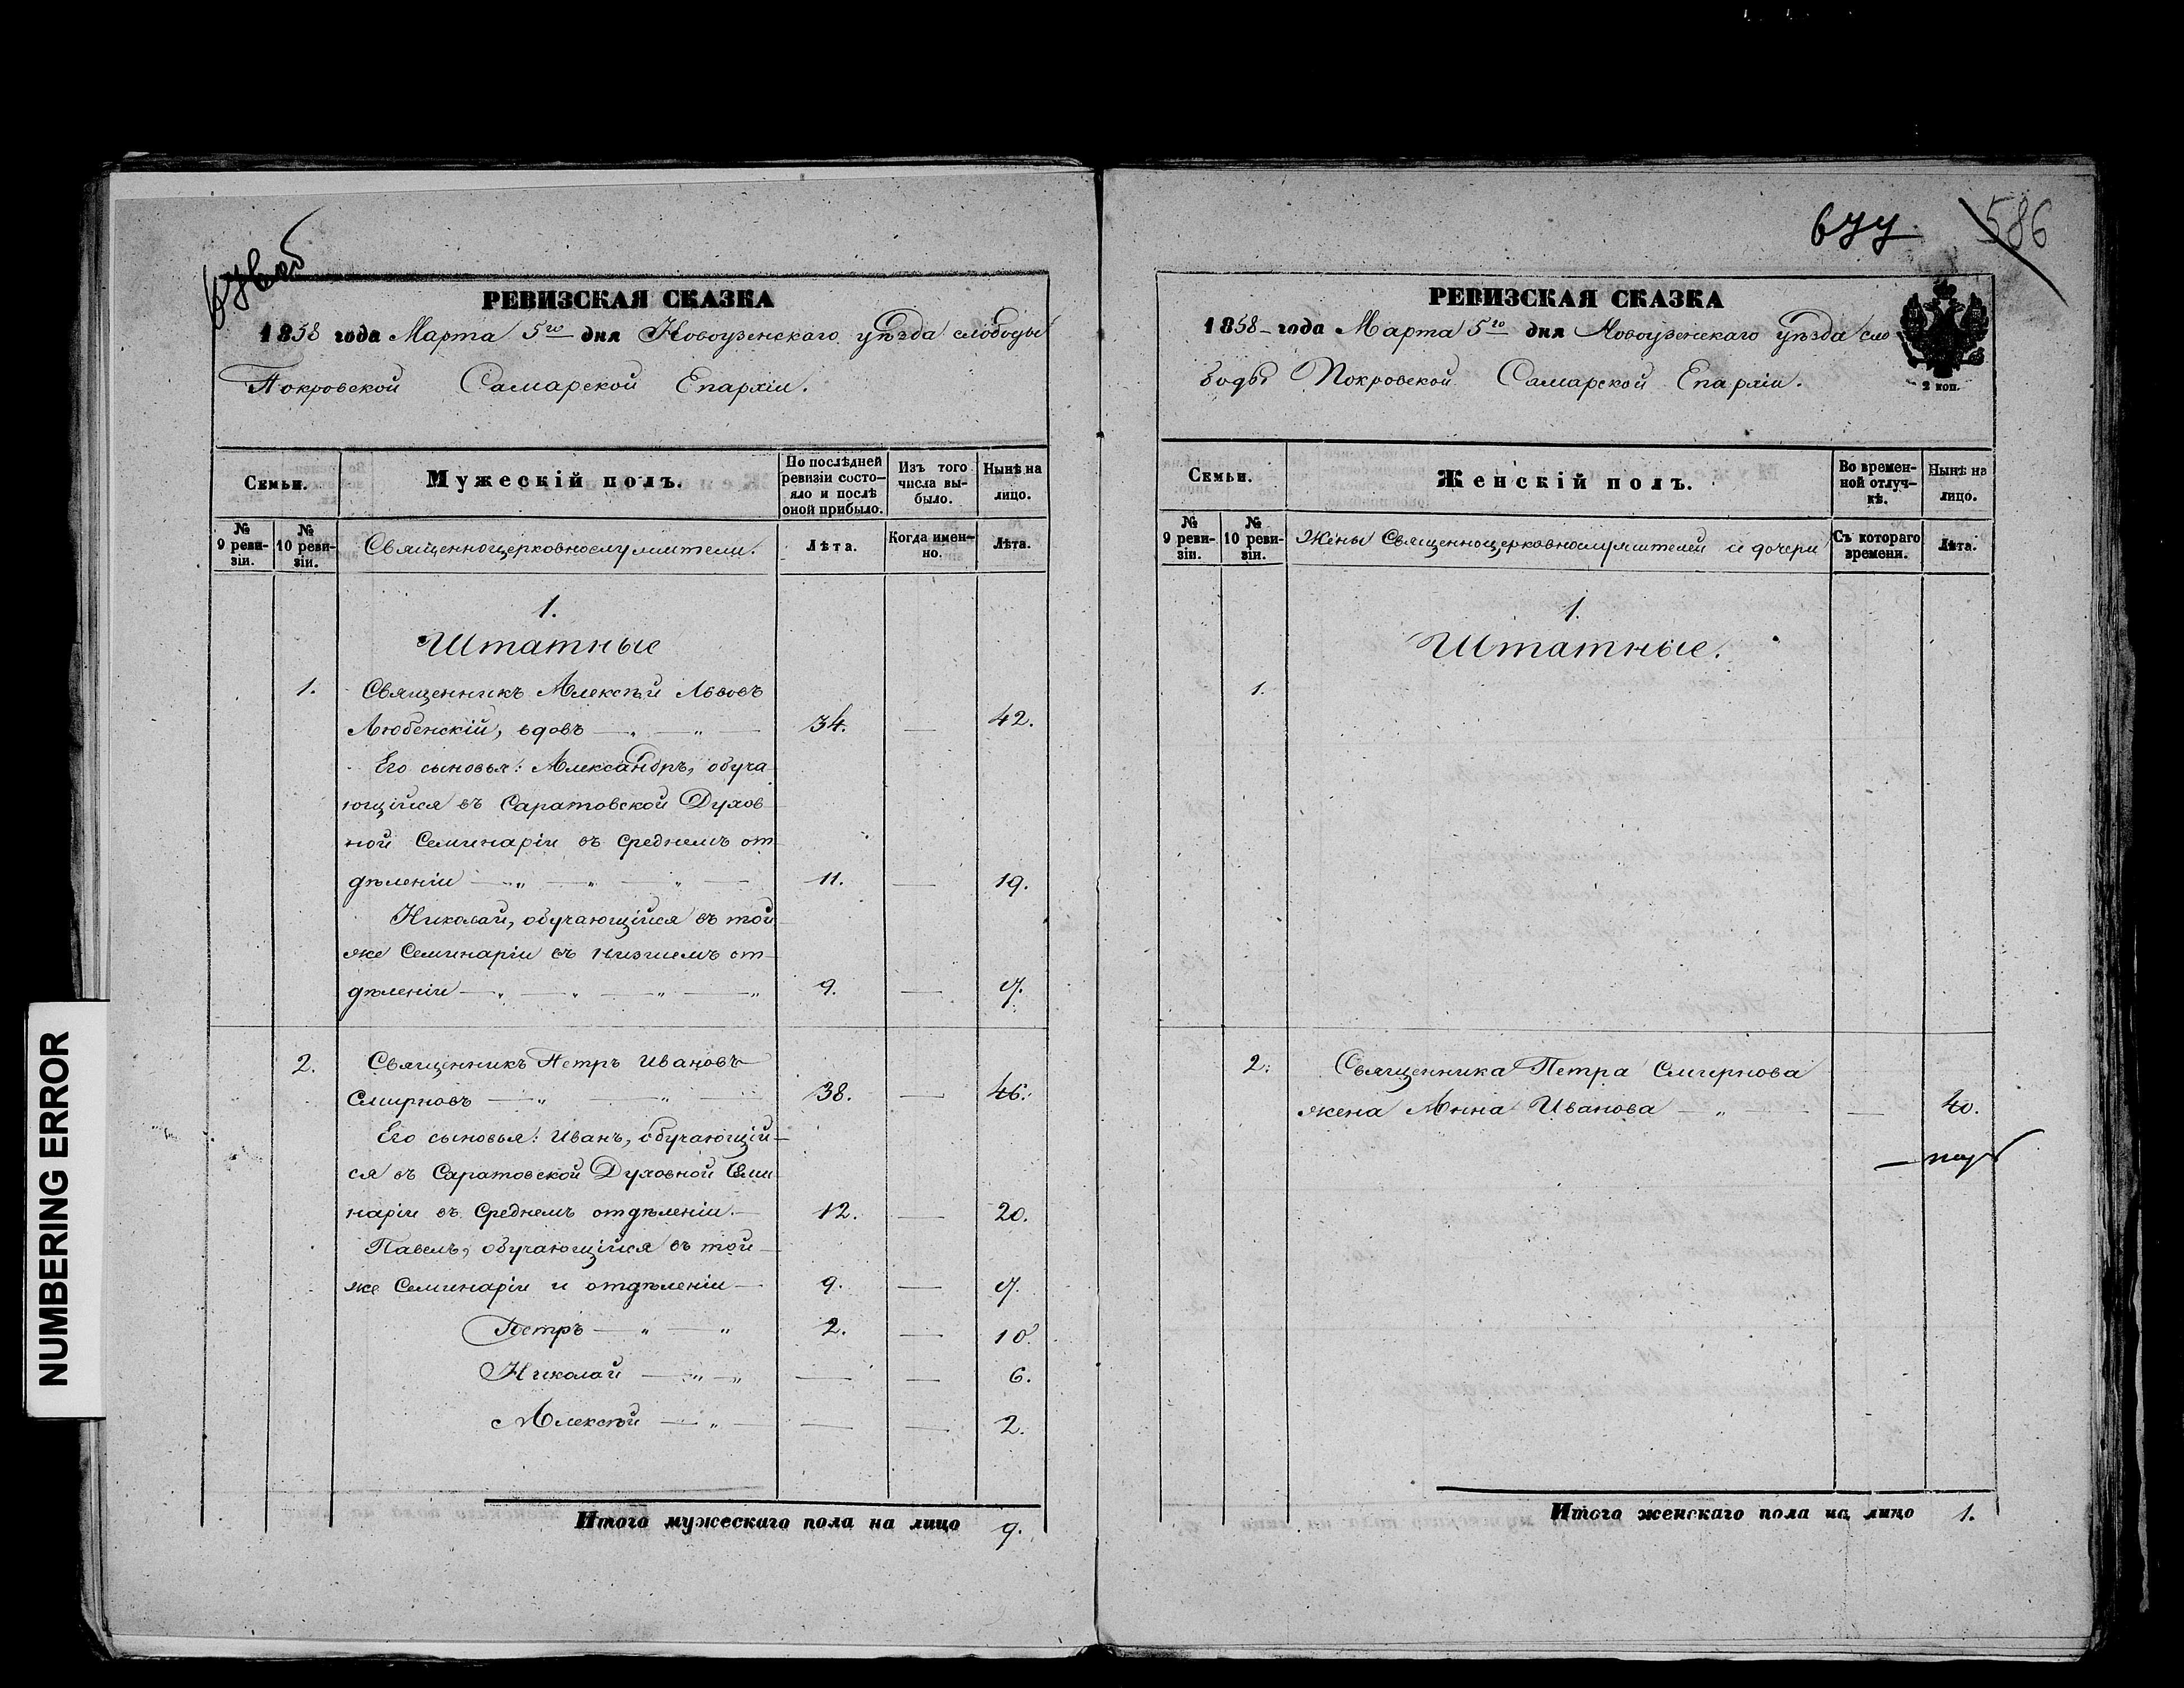 586
РЕВИЗСКАЯ СКАЗКА
1858 года Марта 5го дня Новоузенскаго уѣзда слободы
Покровской Самарской Епархіи.
Семьи.
Мужескій полъ.
По послѣдней ревизіи состо-
яло и послѣ оной прибыло.
Изъ того числа вы-
было.
Нынѣ на лицо.
№ 9 реви-
зіи.
№ 10 реви-
зіи.
Священноцерковнослужители.
Лѣта.
Когда имен-
но.
Лѣта.
1.
Штатные
1. Священникъ Алексѣй Львовъ
Любенскій, вдовъ — „ — „ — 34. — 42.
Его сыновья: Александръ, обуча-
ющійся въ Саратовской Духов-
ной Семинаріи въ Среднемъ от-
дѣленіи — „ — „ — „ — 11. — 19.
Николай, обучающійся въ той-
же Семинаріи въ низшемъ от-
дѣленіи — „ — „ — „ — „ 9. —
2. Священникъ Петръ Ивановъ
Смирновъ — „ — „ — 38. — 46.
Его сыновья: Иванъ, обучающій-
ся въ Саратовской Духовной Семи-
наріи въ Среднемъ отдѣленіи. — 12. — 20.
Павелъ, обучающійся въ той-
же Семинаріи и отдѣленіи — 9. —
Петръ — „ — „ 2. — 10.
Николай — „ — „ — — 6.
Алексѣй — „ — — — 2.
Итого мужескаго пола на лицо 9.
РЕВИЗСКАЯ СКАЗКА
1858 года Марта 5го дня Новоузенскаго уѣзда сло-
боды Покровской Самарской Епархіи.
2 коп.
Семьи.
Женскій полъ.
Во времен-
ной отлуч-
кѣ.
Нынѣ на лицо.
№ 9 реви-
зіи.
№ 10 реви-
зіи.
Жены Священноцерковнослужителей и дочери
Съ котораго времени.
Лѣта.
1.
Штатные.
1.
2. Священника Петра Смирнова
жена Анна Иванова — „ — — 40.
Итого женскаго пола на лицо 1.
NUMBERING ERROR